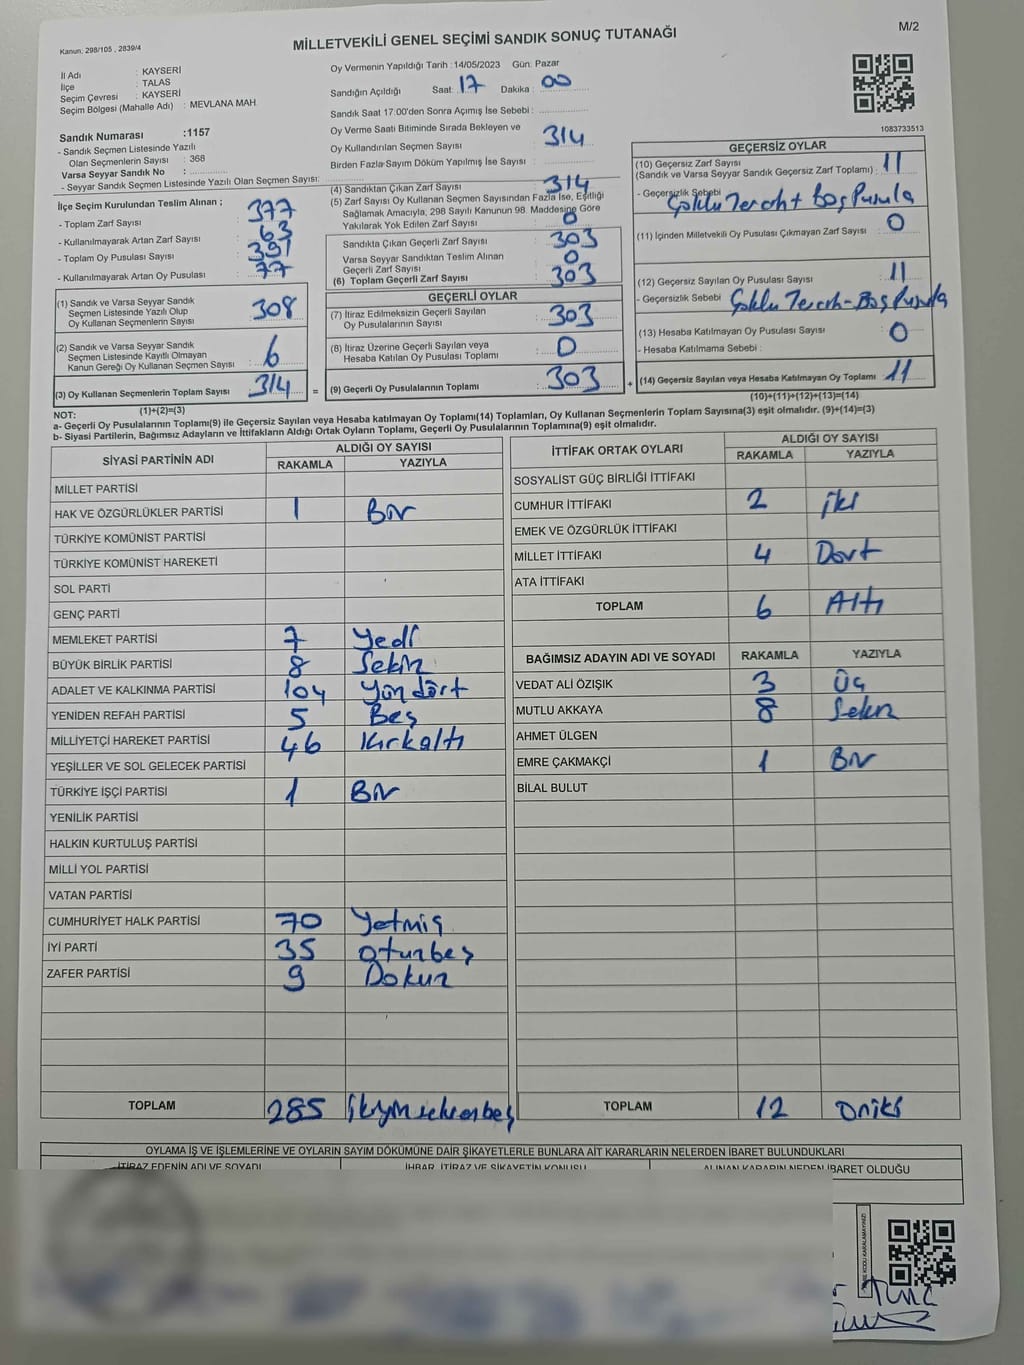 Kanun: 298/105 , 2839/4
MİLLETVEKİLİ GENEL SEÇİMİ SANDIK SONUÇ TUTANAĞI
M/2
İl Adı : KAYSERİ
İlçe : TALAS
Seçim Çevresi : KAYSERİ
Seçim Bölgesi (Mahalle Adı) : MEVLANA MAH.
Sandık Numarası :1157
- Sandık Seçmen Listesinde Yazılı
Olan Seçmenlerin Sayısı : 368
Varsa Seyyar Sandık No :
- Seyyar Sandık Seçmen Listesinde Yazılı Olan Seçmen Sayısı:
İlçe Seçim Kurulundan Teslim Alınan ;
- Toplam Zarf Sayısı : 377
- Kullanılmayarak Artan Zarf Sayısı : 63
- Toplam Oy Pusulası Sayısı : 391
- Kullanılmayarak Artan Oy Pusulası : 77
(1) Sandık ve Varsa Seyyar Sandık
Seçmen Listesinde Yazılı Olup
Oy Kullanan Seçmenlerin Sayısı : 308
(2) Sandık ve Varsa Seyyar Sandık
Seçmen Listesinde Kayıtlı Olmayan
Kanun Gereği Oy Kullanan Seçmen Sayısı : 6
(3) Oy Kullanan Seçmenlerin Toplam Sayısı : 314 =
(1)+(2)=(3)
Oy Vermenin Yapıldığı Tarih :14/05/2023 Gün: Pazar
Sandığın Açıldığı Saat: 17 Dakika : 00
Sandık Saat 17:00'den Sonra Açımış İse Sebebi :
Oy Verme Saati Bitiminde Sırada Bekleyen ve
Oy Kullandırılan Seçmen Sayısı : 314
Birden Fazla Sayım Döküm Yapılmış İse Sayısı :
(4) Sandıktan Çıkan Zarf Sayısı : 314
(5) Zarf Sayısı Oy Kullanan Seçmen Sayısından Fazla İse, Eşitliği
Sağlamak Amacıyla, 298 Sayılı Kanunun 98. Maddesine Göre
Yakılarak Yok Edilen Zarf Sayısı : 0
Sandıkta Çıkan Geçerli Zarf Sayısı : 303
Varsa Seyyar Sandıktan Teslim Alınan
Geçerli Zarf Sayısı : 0
(6) Toplam Geçerli Zarf Sayısı : 303
GEÇERLİ OYLAR
(7) İtiraz Edilmeksizin Geçerli Sayılan
Oy Pusulalarının Sayısı : 303
(8) İtiraz Üzerine Geçerli Sayılan veya
Hesaba Katılan Oy Pusulası Toplamı : 0
(9) Geçerli Oy Pusulalarının Toplamı : 303 +
1083733513
GEÇERSİZ OYLAR
(10) Geçersiz Zarf Sayısı
(Sandık ve Varsa Seyyar Sandık Geçersiz Zarf Toplamı) : 11
- Geçersizlik Sebebi : Çoklu Tercih + Boş Pusula
(11) İçinden Milletvekili Oy Pusulası Çıkmayan Zarf Sayısı : 0
(12) Geçersiz Sayılan Oy Pusulası Sayısı : 11
- Geçersizlik Sebebi : Çoklu Tercih - Boş Pusula
(13) Hesaba Katılmayan Oy Pusulası Sayısı : 0
- Hesaba Katılmama Sebebi :
(14) Geçersiz Sayılan veya Hesaba Katılmayan Oy Toplamı : 11
(10)+(11)+(12)+(13)=(14)
NOT:
a- Geçerli Oy Pusulalarının Toplamı(9) ile Geçersiz Sayılan veya Hesaba katılmayan Oy Toplamı(14) Toplamları, Oy Kullanan Seçmenlerin Toplam Sayısına(3) eşit olmalıdır. (9)+(14)=(3)
b- Siyasi Partilerin, Bağımsız Adayların ve İttifakların Aldığı Ortak Oyların Toplamı, Geçerli Oy Pusulalarının Toplamına(9) eşit olmalıdır.
SİYASİ PARTİNİN ADI
ALDIĞI OY SAYISI
RAKAMLA YAZIYLA
MİLLET PARTİSİ
HAK VE ÖZGÜRLÜKLER PARTİSİ 1 Bir
TÜRKİYE KOMÜNİST PARTİSİ
TÜRKİYE KOMÜNİST HAREKETİ
SOL PARTİ
GENÇ PARTİ
MEMLEKET PARTİSİ 7 Yedi
BÜYÜK BİRLİK PARTİSİ 8 Sekiz
ADALET VE KALKINMA PARTİSİ 104 Yüz dört
YENİDEN REFAH PARTİSİ 5 Beş
MİLLİYETÇİ HAREKET PARTİSİ 46 Kırkaltı
YEŞİLLER VE SOL GELECEK PARTİSİ
TÜRKİYE İŞÇİ PARTİSİ 1 Bir
YENİLİK PARTİSİ
HALKIN KURTULUŞ PARTİSİ
MİLLİ YOL PARTİSİ
VATAN PARTİSİ
CUMHURİYET HALK PARTİSİ 70 Yetmiş
İYİ PARTİ 35 Oturbeş
ZAFER PARTİSİ 9 Dokuz
TOPLAM 285 İkiyüzseksenbeş
İTTİFAK ORTAK OYLARI
ALDIĞI OY SAYISI
RAKAMLA YAZIYLA
SOSYALİST GÜÇ BİRLİĞİ İTTİFAKI
CUMHUR İTTİFAKI 2 iki
EMEK VE ÖZGÜRLÜK İTTİFAKI
MİLLET İTTİFAKI 4 Dört
ATA İTTİFAKI
TOPLAM 6 Altı
BAĞIMSIZ ADAYIN ADI VE SOYADI RAKAMLA YAZIYLA
VEDAT ALİ ÖZIŞIK 3 Üç
MUTLU AKKAYA 8 Sekiz
AHMET ÜLGEN
EMRE ÇAKMAKÇİ 1 Bir
BİLAL BULUT
TOPLAM 12 Oniki
OYLAMA İŞ VE İŞLEMLERİNE VE OYLARIN SAYIM DÖKÜMÜNE DAİR ŞİKAYETLERLE BUNLARA AİT KARARLARIN NELERDEN İBARET BULUNDUKLARI
İTİRAZ EDENİN ADI VE SOYADI İHBAR, İTİRAZ VE ŞİKAYETİN KONUSU ALINAN KARARIN NEDEN İBARET OLDUĞU